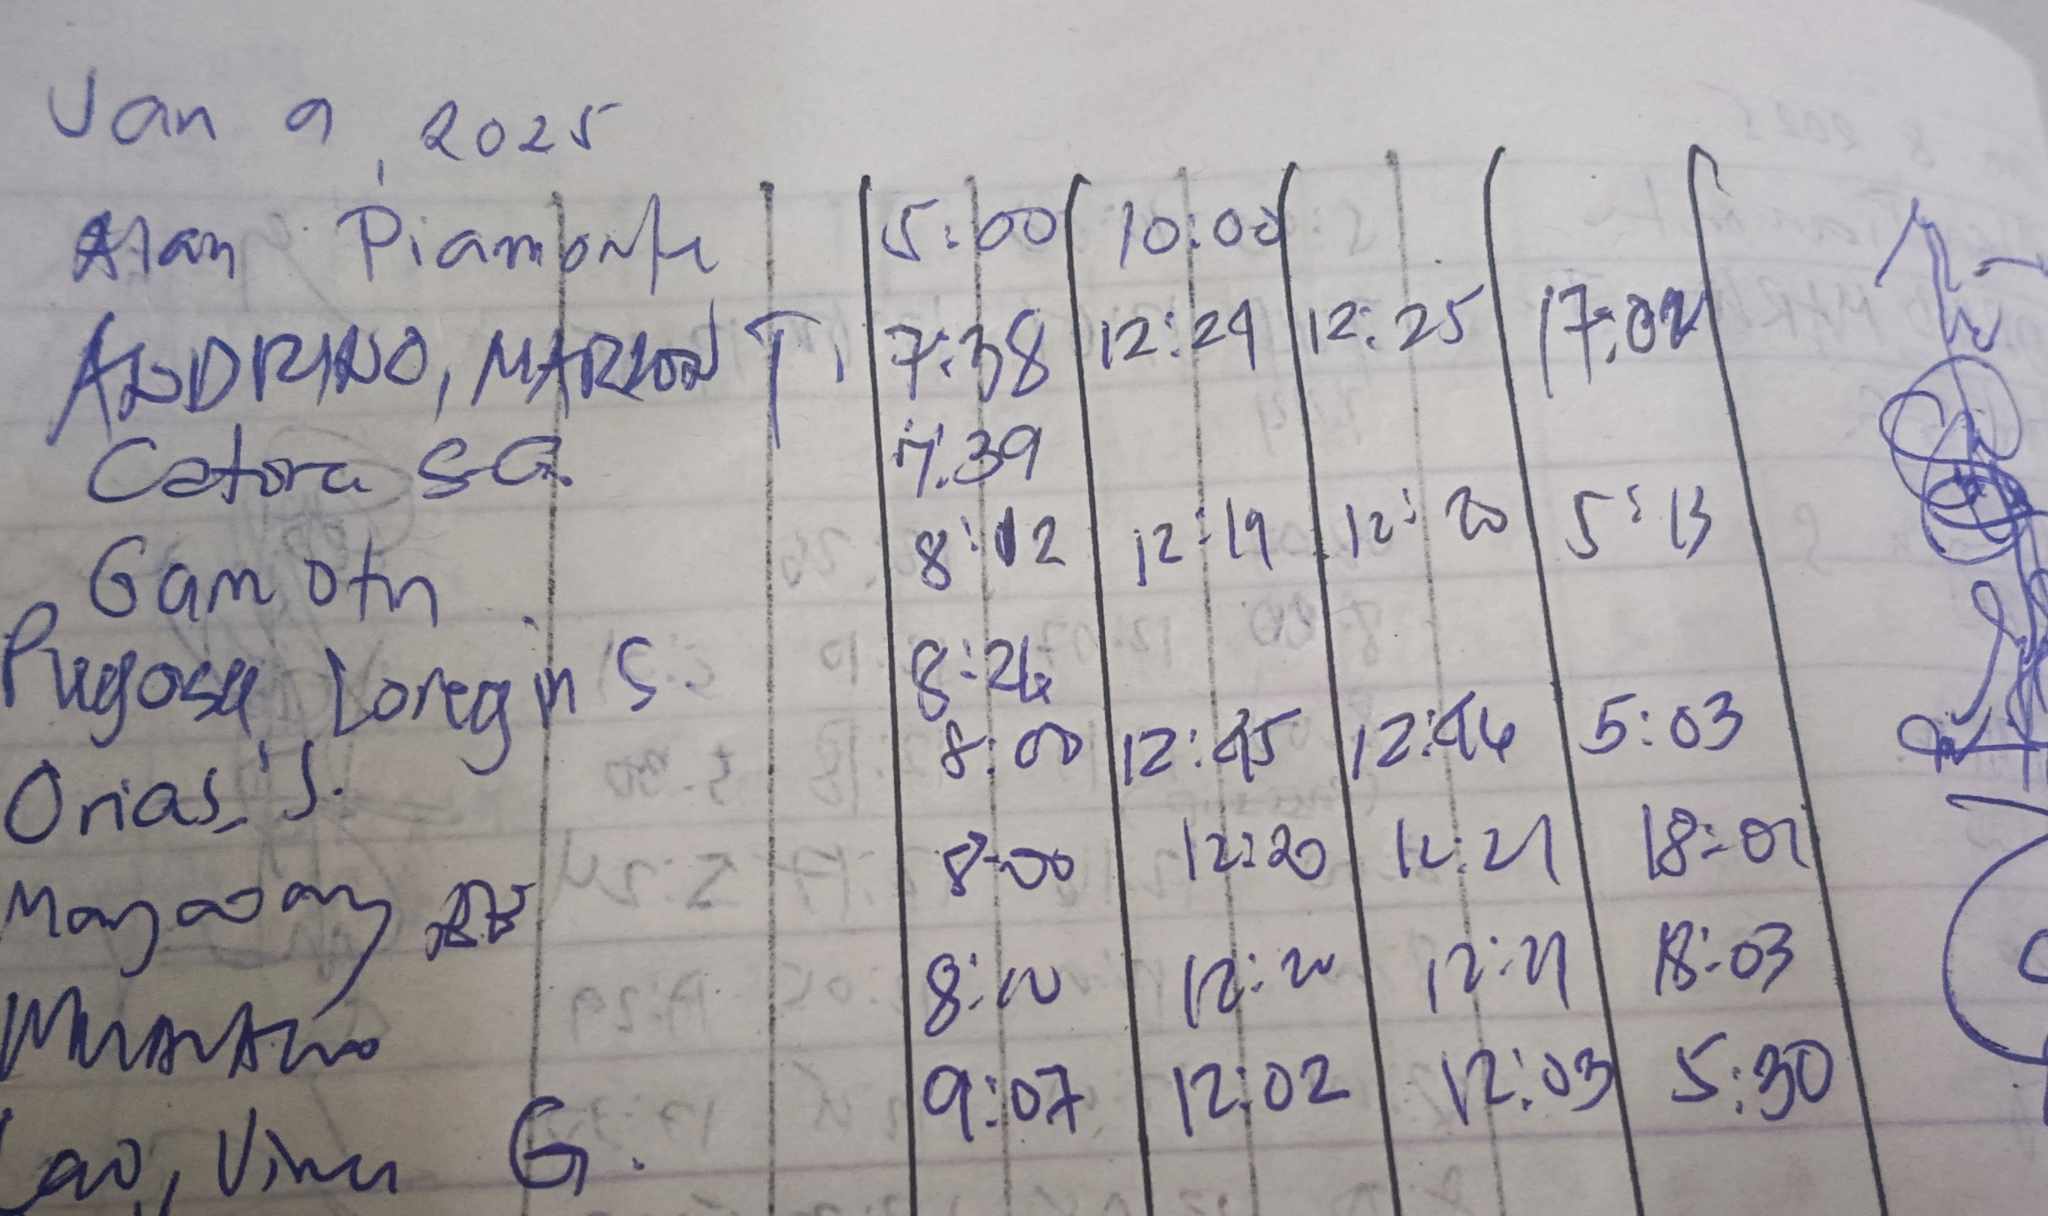 Jan 9, 2025
Alan Piamonte 5:00 10:00
ANDRINO, MARLON T. 7:38 12:24 12:25 17:02
Catora S.G. 7:39
Gamotn 8:12 12:19 12:20 5:13
Pugosa, Loregin S. 8:24
Orias, J. 8:00 12:45 12:46 5:03
8:00 12:20 12:21 18:01
8:10 12:20 12:21 18:03
Lao, Vince G. 9:07 12:02 12:03 5:30